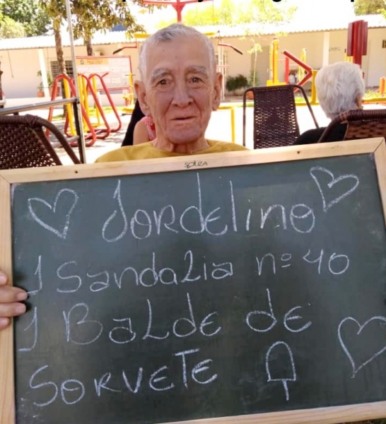 Jordelino
1 Sandalia nº 40
1 Balde de
Sorvete